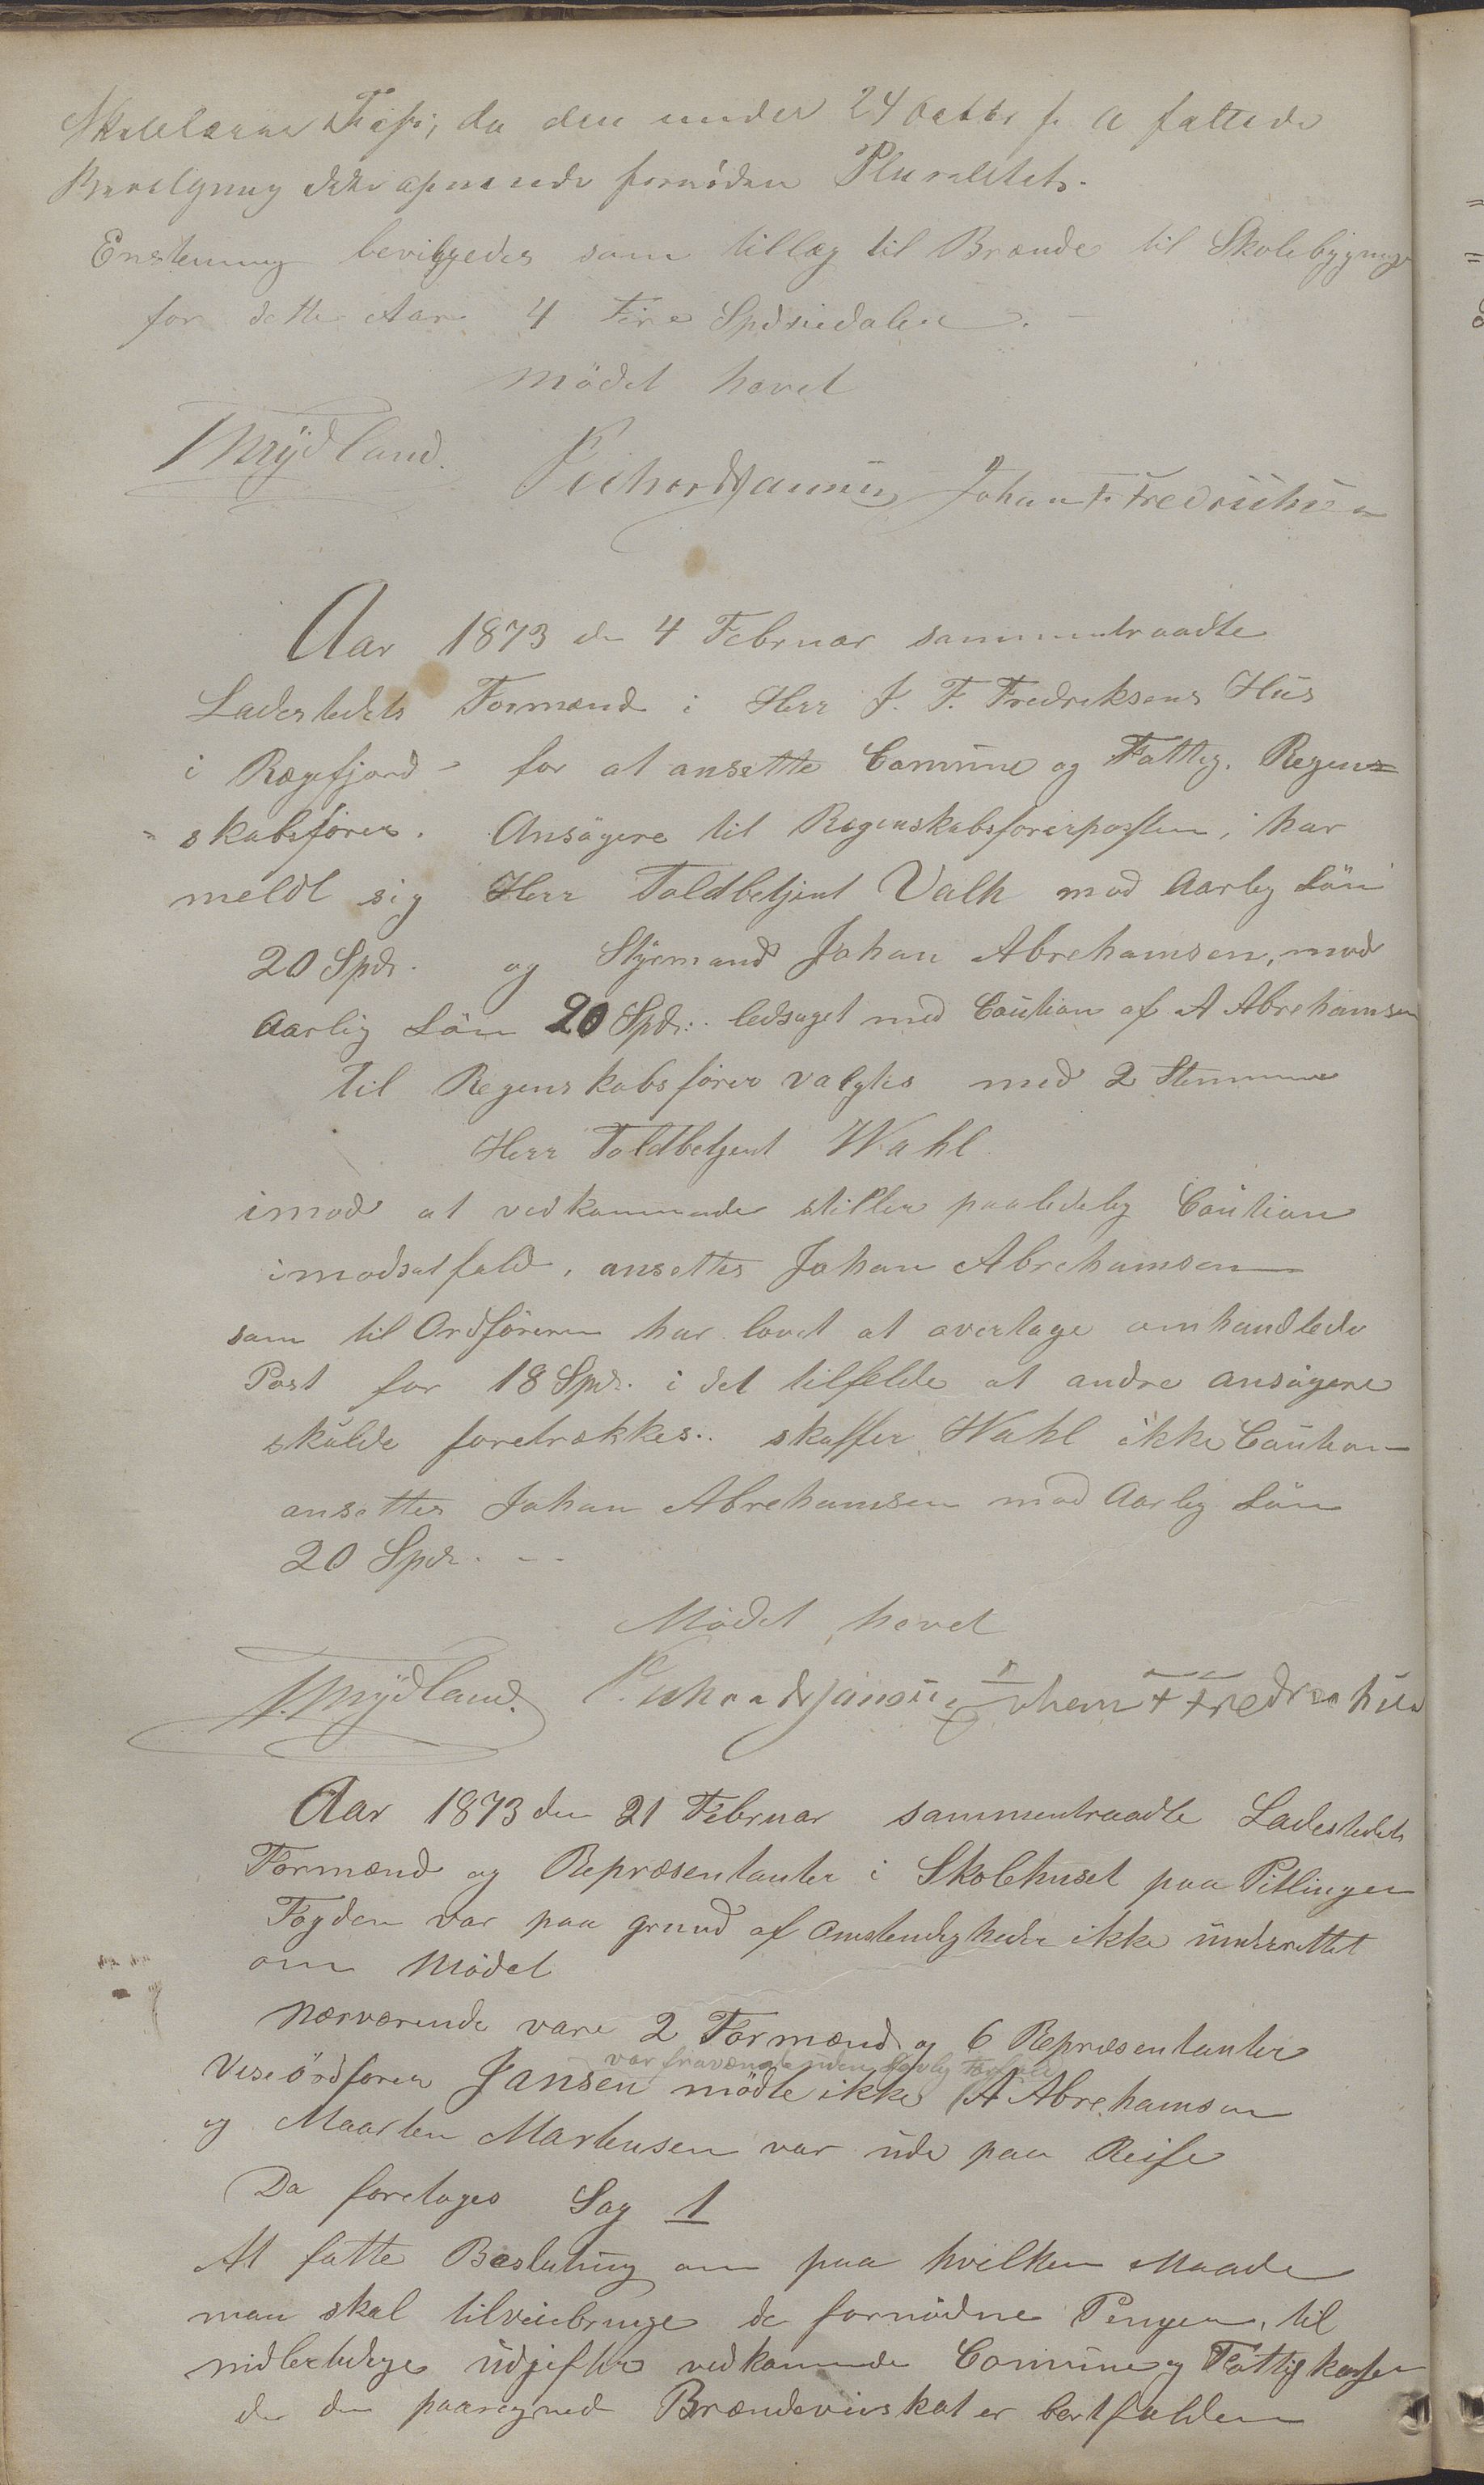 da den under 24 Octbr f. A fattede
ikke fornöden Pluralitet.
Enstemmig bevilgedes som tillæg til Brænde til Skolebygning
for dette Aar 4 Fire Spdsiedaler.
Mödet hævet
Mydland. Johan F Fredriksen
Aar 1873 den 4 Februar sammentraadte
Ladestedets Formænd i Herr J. F. Fredriksens Hüs
i Rægefjord - for at ansætte Comüne og Fattig. Regen=
skabsförer. Ansögere til Regenskabsförerposten, har
meldt sig Herr Toldbetjent Valh mod Aarlig Lön
20 Spdr. og Styrmand Johan Abrehamsen, mod
Aarlig Lön 20 Spdr. ledsaget med Caütion af A Abrehamsen
til Regenskabsförer valgtes med 2 Stemmer
Herr Toldbetjent Wahl
imod at vedkommende stiller paalidelig Caütion
imodsatfald, ansættes Johan Abrehamsen
som til Ordföreren har lovet at overtage omhandlede
Post for 18 Spdr. i det tilfelde at andre ansögere
skülde foretrækkes. skaffer Wahl ikke Caütion
ansættes Johan Abrehamsen mod Aarlig Lön
20 Spdr. --
Mödet hævet
Mydland. Johan F Fredriksen
Aar 1873 den 21 Februar sammentraadte Ladestedets
Formænd og Repræsentanter i Skolehuset paa Pitlingen
Fogden var paa grund af Omstendigheder ikke ünderrettet
om Mödet
Nærværende vare 2 Formænd og 6 Repræsentanter
var fraværende üden lovlig Forfald
Viseordförer Jansen mödte ikke A Abrehamsen
og Maarten Martensen var üde paa Reise
Da foretages Sag 1
At fatte Beslutning om paa hvilken Maade
man skal tilveiebringe de fornödne Penger, til
midlertidige üdgifter vedkomende Comüne og Fattigkassen
da den paaregnede Brændeviinskat er bortfalden